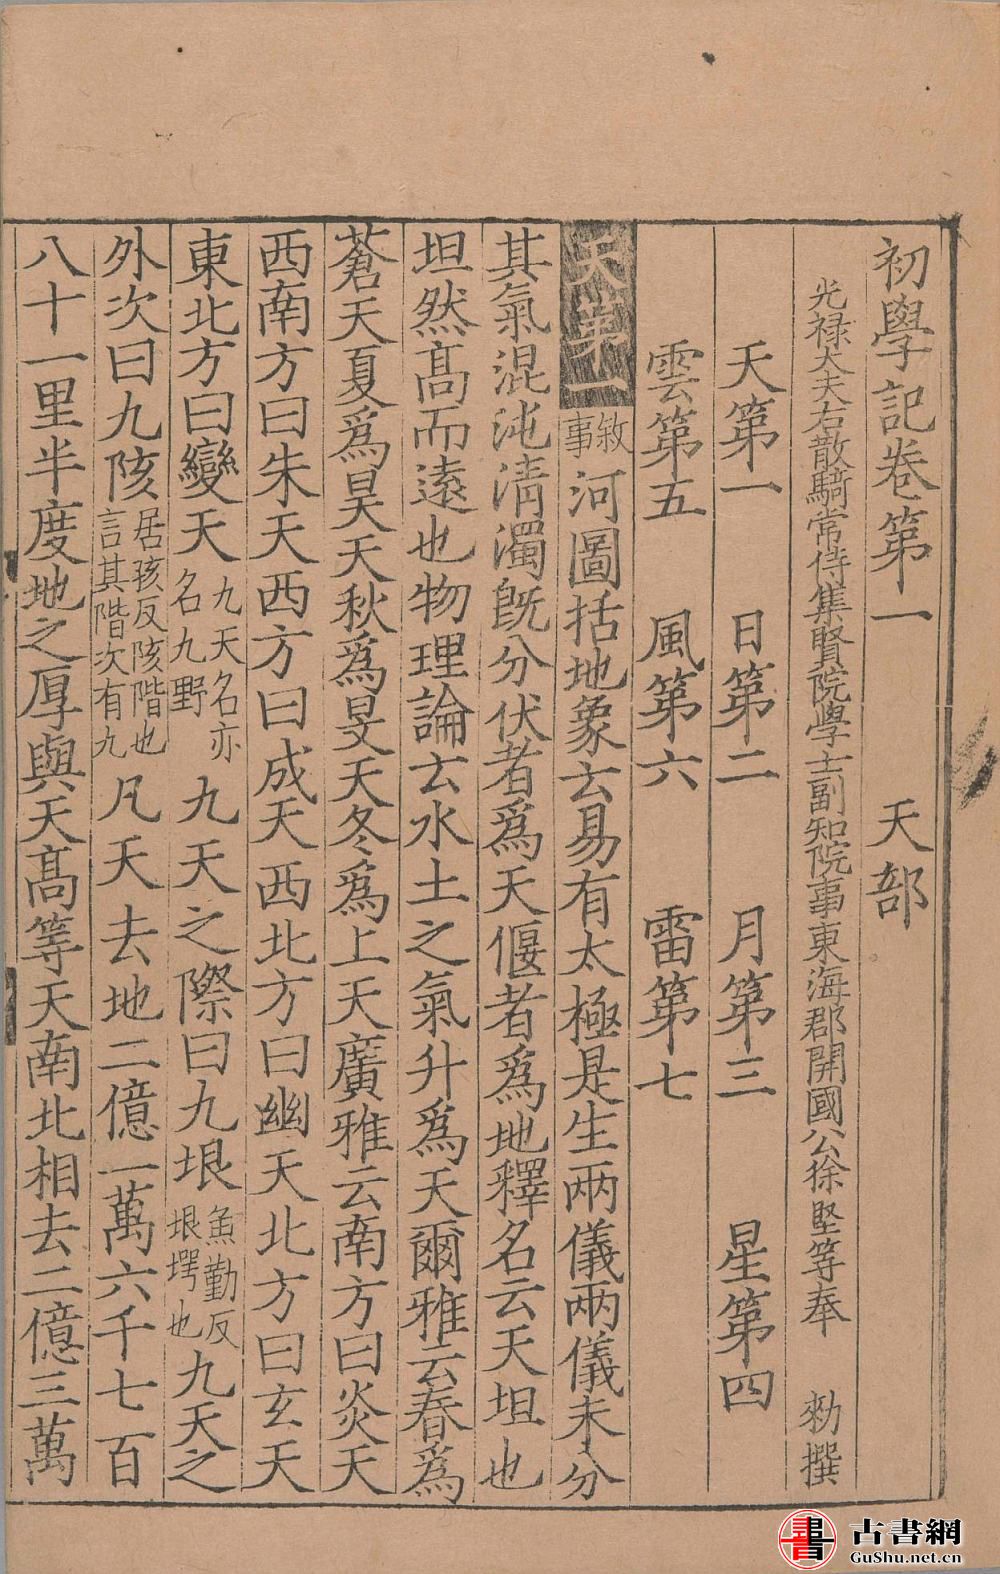 初學記卷第一　　天部
光祿大夫右散騎常侍集賢院學士副知院事東海郡開國公徐堅等奉　勑撰
天第一　　日第二　　月第三　　星第四
雲第五　　風第六　　雷第七
天苐一 敘事 河圖括地象云易有太極是生兩儀兩儀未分
其氣混沌清濁旣分伏者爲天偃者爲地釋名云天坦也
坦然髙而遠也物理論云水土之氣升爲天爾雅云春爲
蒼天夏爲昊天秋爲旻天冬爲上天廣雅云南方曰炎天
西南方曰朱天西方曰成天西北方曰幽天北方曰玄天
東北方曰變天 九天名亦名九野 九天之際曰九垠 魚勤反垠堮也 九天之
外次曰九陔 居孩反陔階也言其階次有九 凡天去地二億一萬六千七百
八十一里半度地之厚與天髙等天南北相去二億三萬
書
古書網
GuShu.net.cn